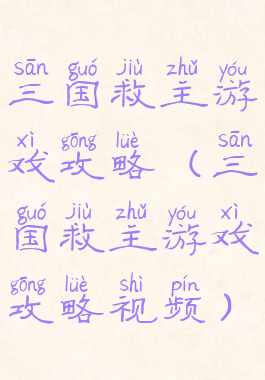 sān guó jiù zhǔ yóu
三国救主游
xì gōng lüè sān
戏攻略（三
guó jiù zhǔ yóu xì
国救主游戏
gōng lüè shì pín
攻略视频）